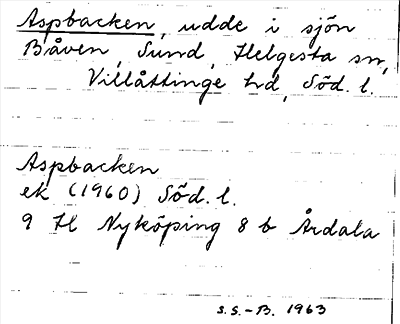 Aspbacken, udde i sjön
Båven, Sund, Helgesta sn,
Villåttinge hd, Söd. l.
Aspbacken
ek (1960) Söd. l.
9 H Nyköping 8 b Årdala
S.S.-B. 1963